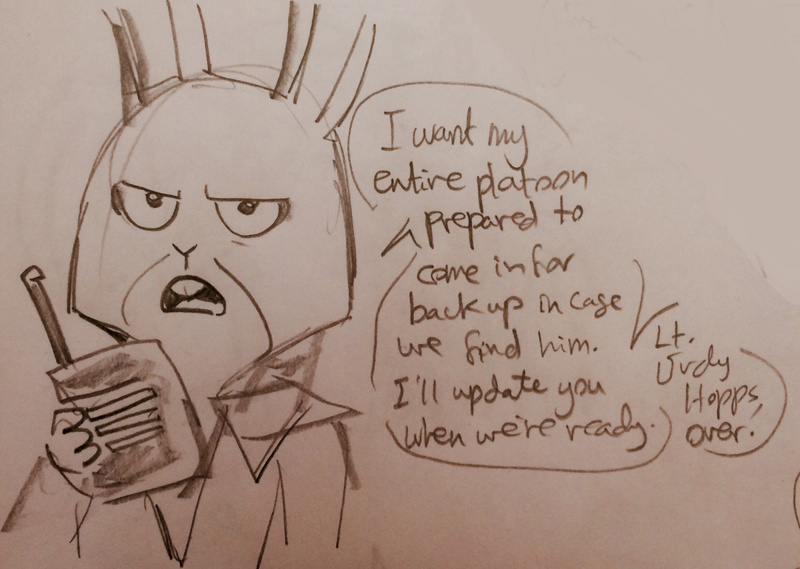 I want my
entire platoon
prepared to
come in for
backup in case
we find him.
I'll update you
when we're ready.
Lt.
Judy
Hopps,
over.